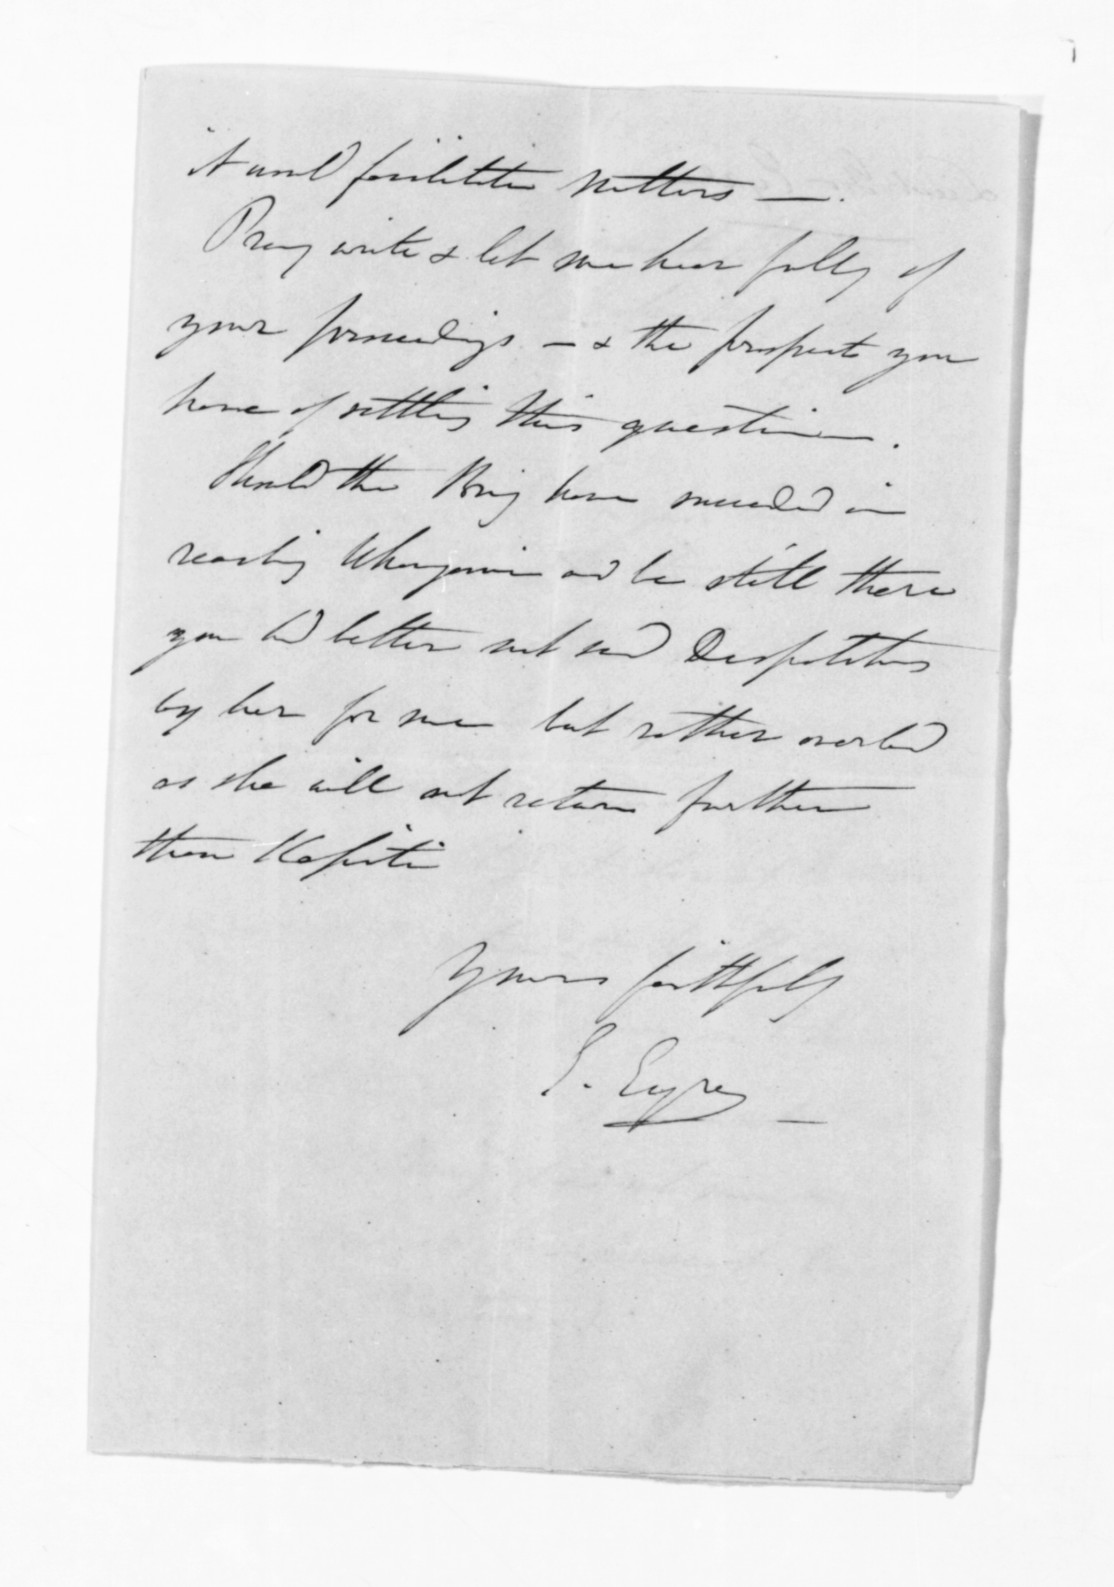 it would facilitate matters —.
Pray write & let me hear fully of
your proceedings — & the prospect you
have of settling this question.
Should the Brig have succeeded in
reaching Whanganui and be still there
you had better not send Despatches
by her for me but rather overland
as she will not return further
than Kapiti
Yours faithfully
E. Eyre —